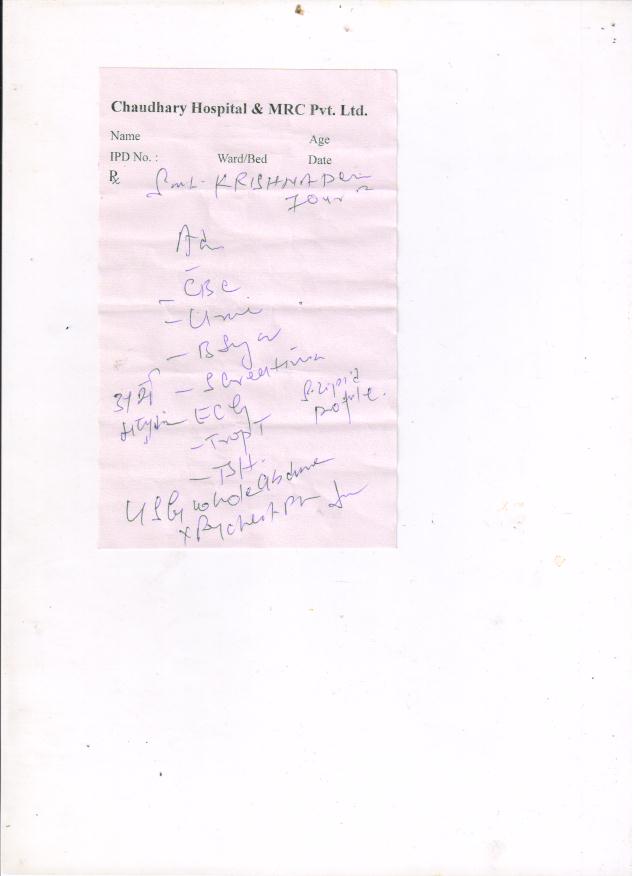 Chaudhary Hospital & MRC Pvt. Ltd.
Name Age
IPD No. : Ward/Bed Date
℞ Smt. KRISHNA Devi
70 yr
Ad
- CBC
- Urine
- B Sugar
- S Creatinine
S. Lipid
profile.
ECG
- Trop T
USG whole abdomen
X Ray chest PA